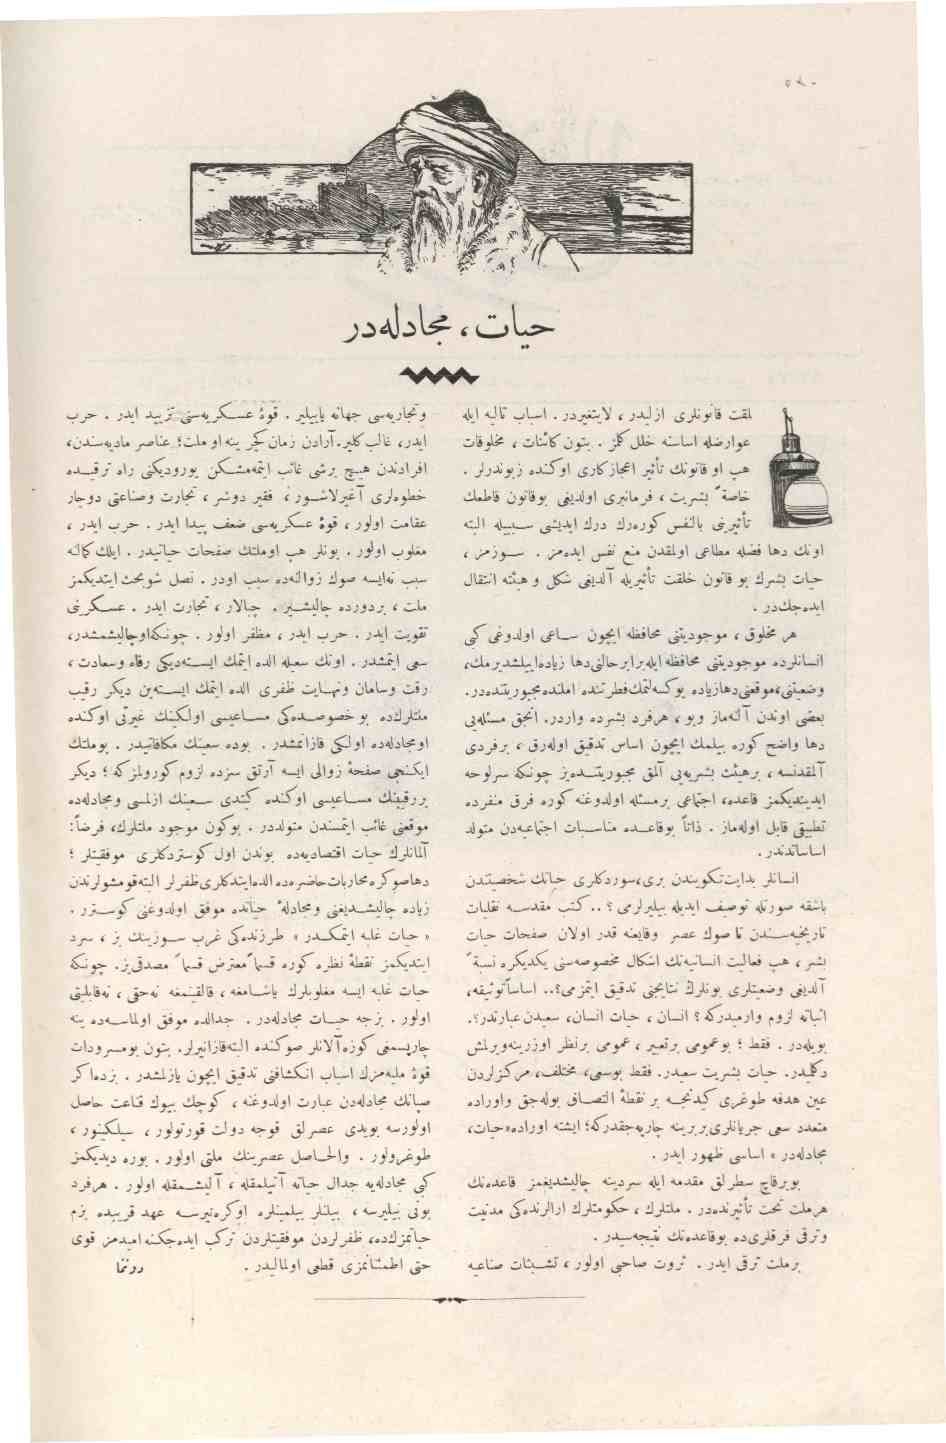 حيات ، مجادله‌در
لقت قانونلرى ازليدر ، لايتغيردر . اسباب تاليه ايله
عوارضله اساسنه خلل كلمز . بتون كائنات ، مخلوقات
هپ او قانونك تأثير اعجازكارى اوكنده زبوندرلر .
خاصةً بشريت ، فرمانبرى اولديغى بوقانون قاطعك
تأثيرنى بالنفس كوره‌رك درك ايديشى سببيله البته
اونك دها فضله مطاعى اولمقدن منع نفس ايده‌مز . سوزمز ،
حيات بشرك بو قانون خلقت تأثيريله آلديغى شكل و هيئته انتقال
ايده‌جكدر .
هر مخلوق ، موجوديتنى محافظه ايچون ساعى اولدوغى كبى
انسانلرده موجوديتنى محافظه ايله‌برابر حالنى‌دها زياده‌اييلشديرمك،
وضعيتنى،موقعنى‌دهازياده يوكسه‌لتمك‌فطرتنده املنده‌مجبوريتنده‌در.
بعضى اوندن آلـه‌ماز وبو ، هرفرد بشرده واردر. انجق مسئله‌يى
دها واضح كوره بيلمك ايچون اساس تدقيق اوله‌رق ، برفردى
آلمقدنسه ، برهيئت بشريه‌يى آلمق مجبوريتنده‌يز چونكه سرلوحه
ايديندیكمز قاعده، اجتماعى برمسئله اولدوغنه كوره فرق منفرده
تطبيقى قابل اوله‌ماز . ذاتاً بوقاعده مناسبات اجتماعيه‌دن متولد
اساساتدندر .
انسانلر بدايت‌تكونندن برى،سوردكلرى حياتك شخصيتدن
باشقه صورتله توصيف ايديله بيليرلرمى ؟ .. كتب مقدسه نقليات
تاريخيه‌سندن تا صوك عصر وقايعنه قدر اولان صفحات حيات
بشر ، هپ فعاليت انسانيه‌نك اشكال مخصوصه‌سنى يكديكره نسبةً
آلديغى وضعيتلرى بونلرك نتايجنى تدقيق ايتمزمى؟.. اساساًتوثيقه،
اثباته لزوم وارميدركه ؟ انسان ، حيات انسان، سعيدن‌عبارتدر؟.
بويله‌در . فقط ؛ بوعمومى برتعبير ، عمومى برنظر اوزرينه‌ويرلمش
دكلدر. حيات بشريت سعيدر. فقط بوسعى، مختلف، مركزلردن
عين هدفه طوغرى كيدنجه بر نقطهٔ التصاق بوله‌جق واوراده
متعدد سعى جريانلرى بربرينه چارپه‌جقدركه؛ ايشته اوراده«حيات،
مجادله‌در » اساسى ظهور ايدر .
بوبرقاچ سطرلق مقدمه ايله سردينه چاليشديغمز قاعده‌نك
هرملت تحت تأثيرنده‌در . ملتلرك ، حكومتلرك ارالرنده‌كى مدنيت
وترقى فرقلرى‌ده بوقاعده‌نك نتيجه‌سيدر .
برملت ترقى ايدر . ثروت صاحبى اولور ، تشبثات صناعيه
وتجاريه‌سى جهانه ياييلير . قوهٔ عسكريه‌سنى تزييد ايدر . حرب
ايدر، غالب كلير.آرادن زمان كچر ينه او ملت؛ عناصر ماديه‌سندن،
افرادندن هيچ برشى غائب ايتمه‌مشكن يوروديكى راه ترقيده
خطوه‌لرى آغيرلاشور ، فقير دوشر ، تجارت وصناعتى دوچار
عقامت اولور ، قوهٔ عسكريه‌سى ضعف پيدا ايدر . حرب ايدر ،
مغلوب اولور . بونلر هپ اوملتك صفحات حياتيدر . ايلك كماله
سبب نه‌ايسه صوك زوالنه‌ده سبب اودر . نصل شوبحث ايتديكمز
ملت ، بردورده چاليشير . چبالار ، تجارت ايدر . عسكرنى
تقويت ايدر . حرب ايدر ، مظفر اولور . چونكه‌اوچاليشمشدر،
سعى ايتمشدر . اونك سعيله الده ايتمك ايسته‌ديكى رفاه وسعادت ،
رقت وسامان ونهايت ظفرى الده ايتمك ايسته‌ين ديكر رقيب
ملتلرك‌ده بو خصوصده‌كى مساعيسى اولكينك غيرتى اوكنده
اومجادله‌ده اولكى قازانمشدر . بوده سعينك مكافاتيدر . بوملتك
ايكنجى صفحهٔ زوالى ايسه آرتق سزده لزوم كورولمزكه ؛ ديكر
بررقيبنك مساعيسى اوكنده كندى سعينك ازلمسى ومجادله‌ده
موقعنى غائب ايتمسندن متولددر . بوكون موجود ملتلرك، فرضاً:
آلمانلرك حيات اقتصاديه‌ده بوندن اول كوستردكلرى موفقيتلر ؛
دهاصوكره‌محاربات‌حاضره‌ده الده‌ايتدكلرى‌ظفرلر البته‌قومشولرندن
زياده چاليشديغنى ومجادلهٔ حياتده موفق اولدوغنى كوسترر .
« حيات غلبه ايتمكدر » طرزنده‌كى غرب سوزينك بز ، سرد
ايتديكمز نقطهٔ نظره كوره قسماً معترض قسماً مصدقى‌يز. چونكه
حيات غلبه ايسه مغلوبلرك ياشامغه ، قالقينمغه نه‌حقى ، نه‌قابليتى
اولور . بزجه حيات مجادله‌در . جدالده موفق اولماسه‌ده ينه
چارپيشمغى كوزه‌آلانلر صوكنده البته‌قازانيرلر. بتون بومسرودات
قوهٔ مليه‌مزك اسباب انكشافنى تدقيق ايچون يازلمشدر . بزده‌اكر
حياتك مجادله‌دن عبارت اولدوغنه ، كوچك بيوك قناعت حاصل
اولورسه يويدى عصرلق قوجه دولت قورتولور ، سيلكينور ،
طوغرولور . والحاصل عصرينك ملتى اولور . بوره ديديكمز
كبى مجادله‌يه جدال حياته آتيلمقله ، آليشمقله اولور . هرفرد
بونى بيليرسه ، بيلنلر بيلمينلره اوكره‌تيرسه عهد قريبده بزم
حياتمزك‌ده، ظفرلردن موفقيتلردن تركب ايده‌جكنه اميدمز قوى
حتى اطمئنانمزى قطعى اولماليدر .
رونما